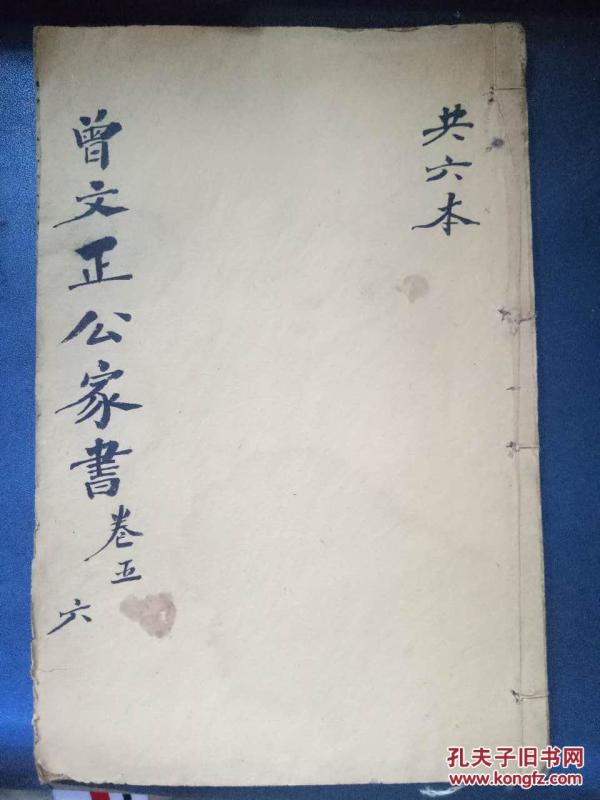 共六本
曾文正公家書卷五
六
孔夫子旧书网
www.kongfz.com